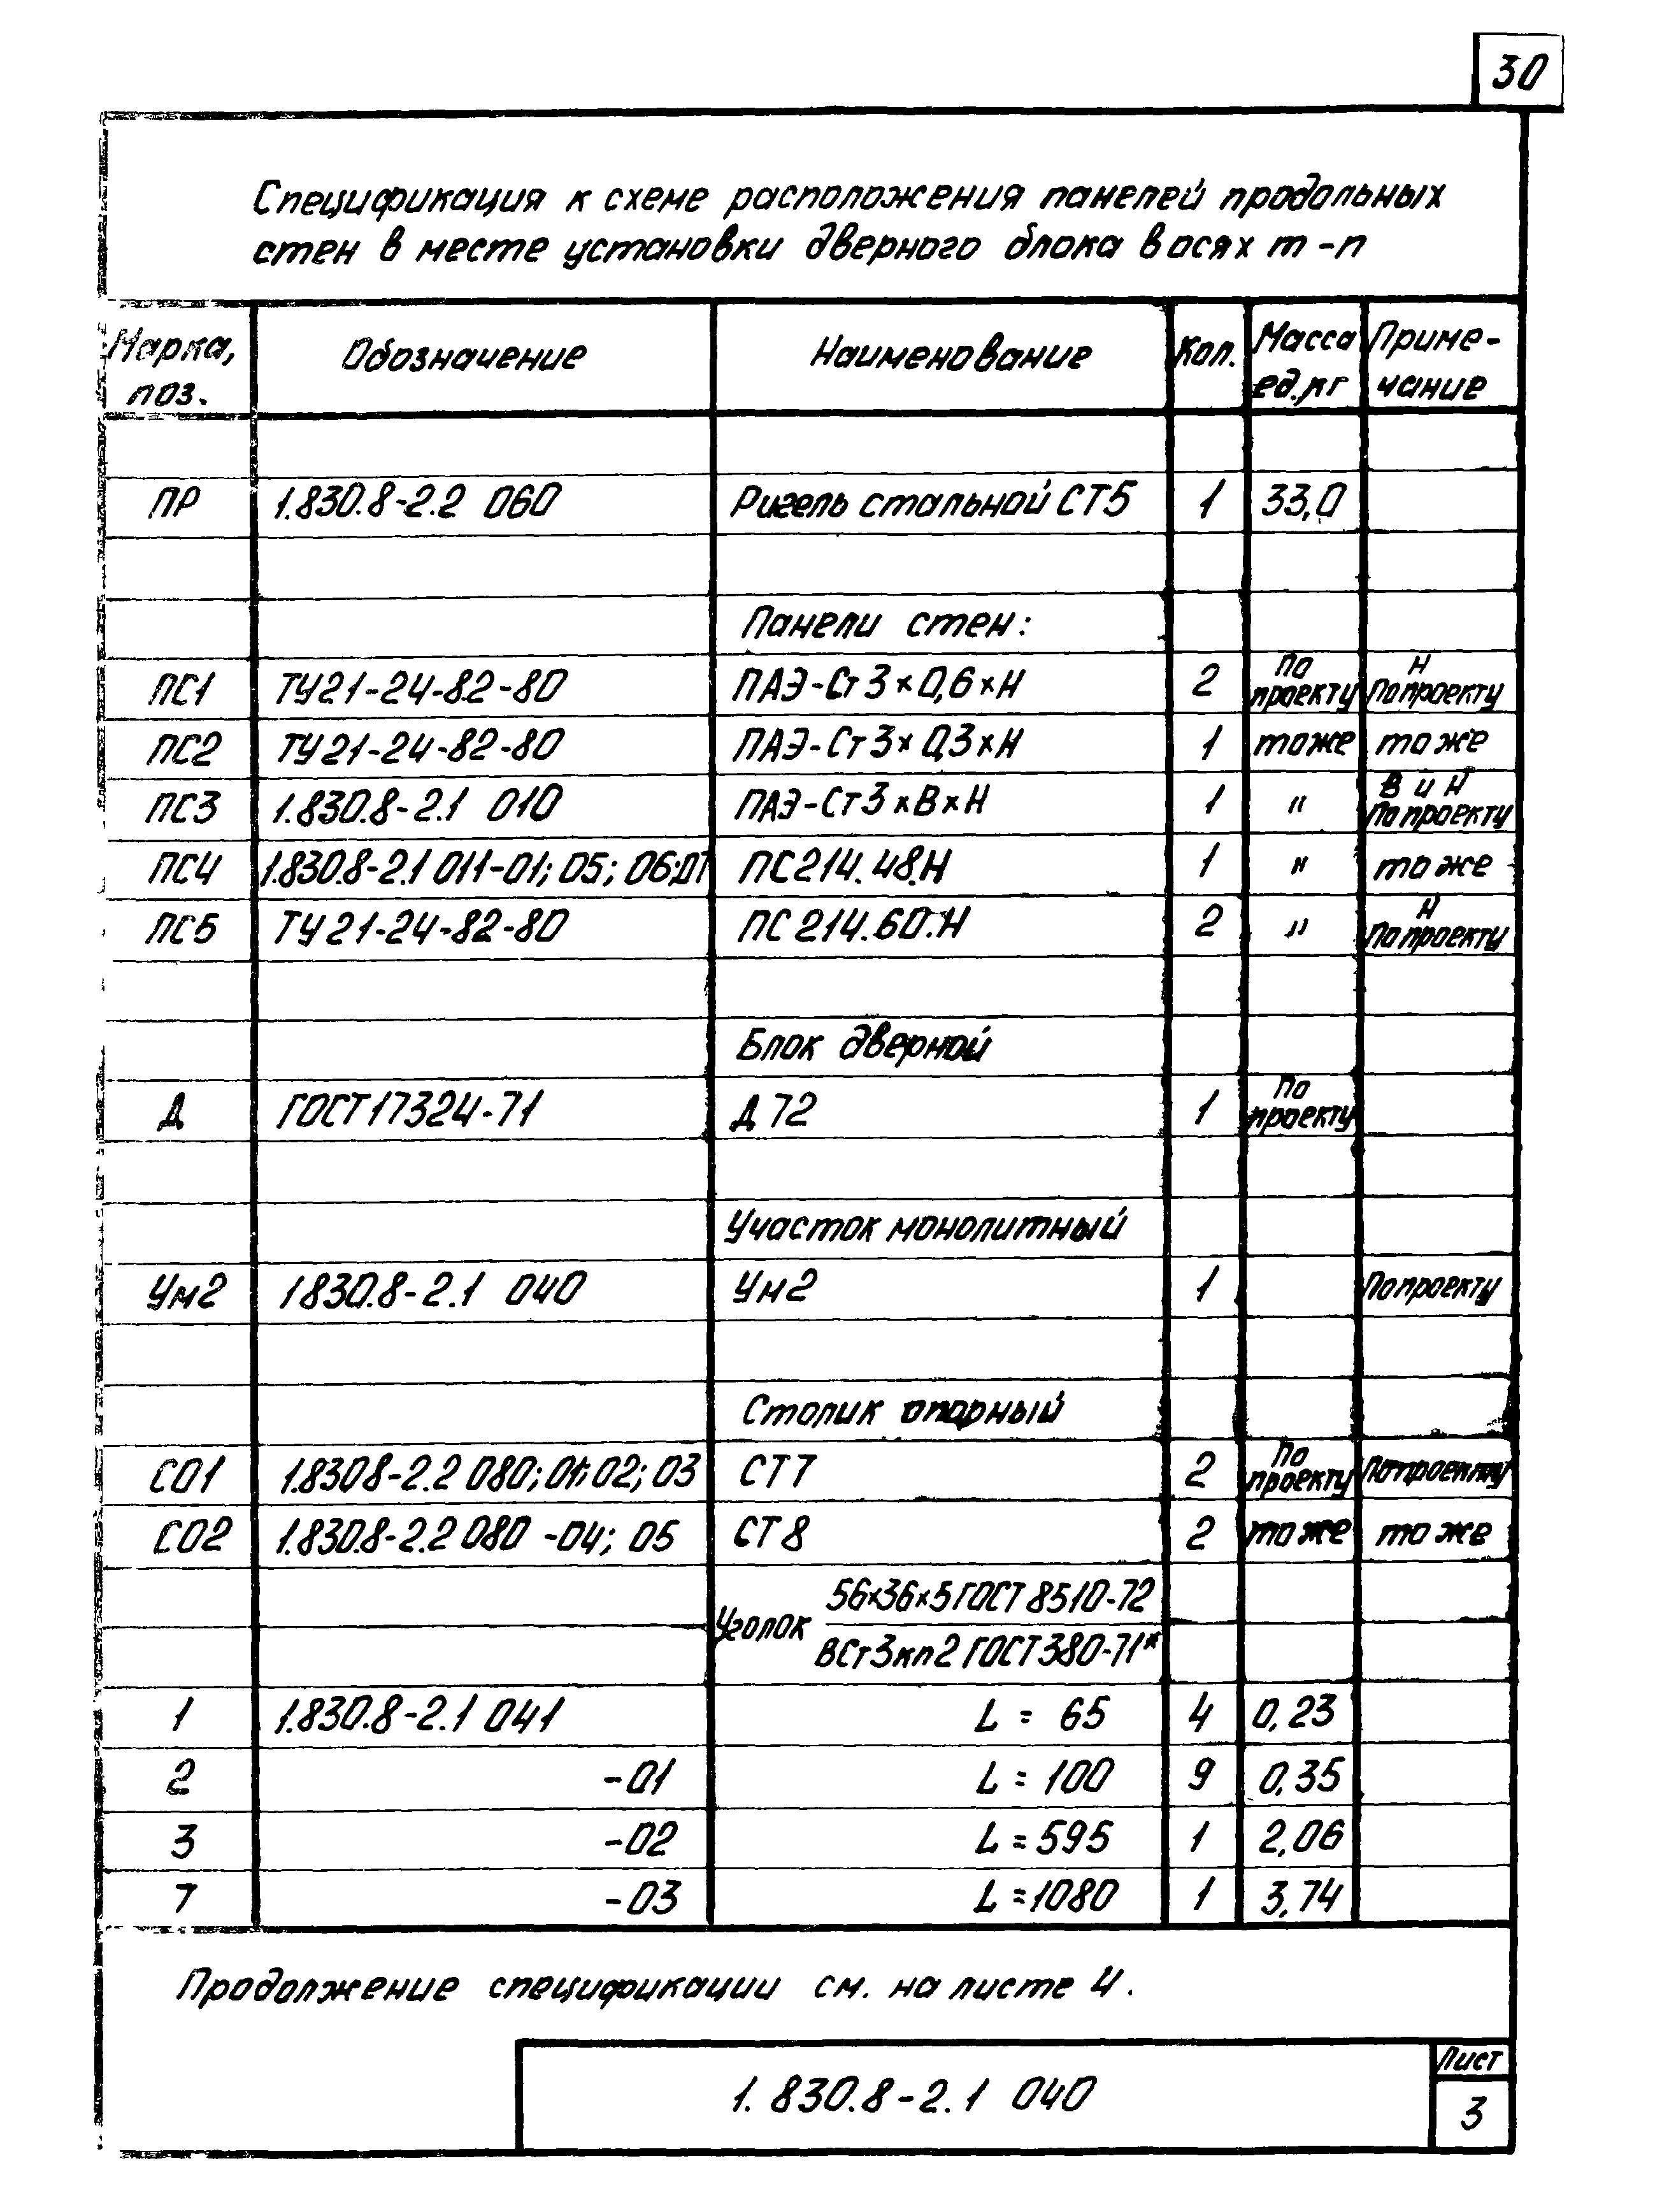 30
Спецификация к схеме расположения панелей продольных
стен в месте установки дверного блока в осях т-п
Марка, поз. Обозначение Наименование Кол. Масса ед., кг Приме-чание
ПР 1.830.8-2.2 060 Ригель стальной СТ5 1 33,0
Панели стен:
ПС1 ТУ21-24-82-80 ПАЭ-Ст3×0,6×Н 2 По проекту Н По проекту
ПС2 ТУ21-24-82-80 ПАЭ-Ст3×0,3×Н 1 то же то же
ПС3 1.830.8-2.1 010 ПАЭ-Ст3×В×Н 1 " В и Н По проекту
ПС4 1.830.8-2.1 011-01; 05; 06;07 ПС214.48.Н 1 " то же
ПС5 ТУ21-24-82-80 ПС214.60.Н 2 " Н По проекту
Блок дверной
Д ГОСТ17324-71 Д72 1 По проекту
Участок монолитный
Ум2 1830.8-2.1 040 Ум2 1 По проекту
Столик опорный
СО1 1.8308-2.2 080;01;02;03 СТ7 2 По проекту По проекту
СО2 1.830.8-2.2 080 -04; 05 СТ8 2 то же то же
Уголок 56×36×5 ГОСТ 8510-72
ВСт3кп2 ГОСТ380-71*
1 1.830.8-2.1 041 L = 65 4 0,23
2 -01 L = 100 9 0,35
3 -02 L = 595 1 2,06
7 -03 L = 1080 1 3,74
Продолжение спецификации см. на листе 4.
Лист
1.830.8-2.1 040 3